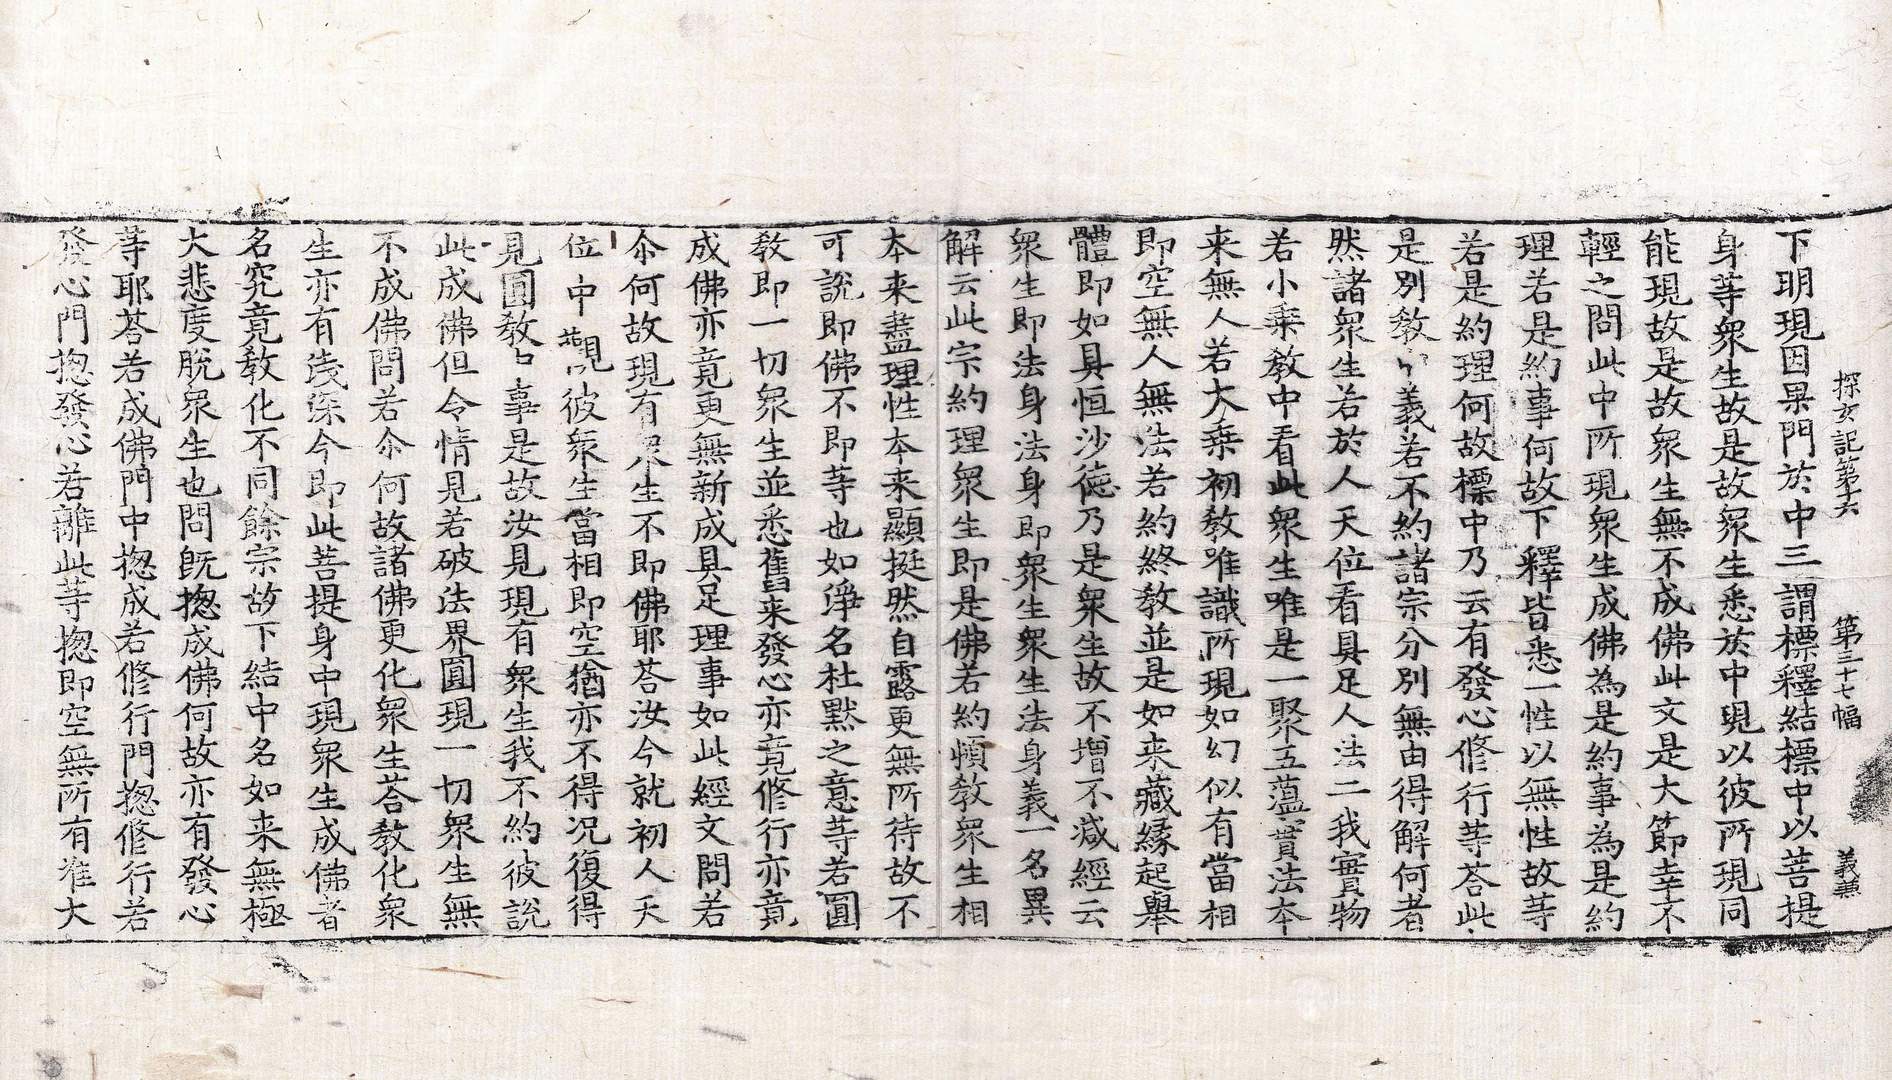 探玄記第十六 第三十七幅 義兼
下明現因果門於中三謂標釋結標中以菩提
身等衆生故是故衆生悉於中現以彼所現同
能現故是故衆生無不成佛此文是大節幸不
輕之問此中所現衆生成佛為是約事為是約
理若是約事何故下釋皆悉一性以無性故等
若是約理何故標中乃云有發心修行等荅此
是別教 義若不約諸宗分別無由得解何者
然諸衆生若於人天位看具足人法二我實物
若小乗教中看此衆生唯是一聚五蘊實法本
来無人若大乗初教唯識所現如幻似有當相
即空無人無法若約終教並是如来藏縁起舉
體即如具恒沙徳乃是衆生故不增不減經云
衆生即法身法身即衆生衆生法身義一名異
解云此宗約理衆生即是佛若約頓教衆生相
本来盡理性本来顯挺然自露更無所待故不
可說即佛不即等也如淨名杜黙之意等若圓
教即一切衆生並悉舊来發心亦竟修行亦竟
成佛亦竟更無新成具足理事如此經文問若
尒何故現有衆生不即佛耶荅汝今就初人天
位中觀 彼衆生當相即空猶亦不得况復得
見圓教 事是故汝見現有衆生我不約彼說
此成佛但令情見若破法界圓現一切衆生無
不成佛問若尒何故諸佛更化衆生荅教化衆
生亦有浅深今即此菩提身中現衆生成佛者
名究竟教化不同餘宗故下結中名如来無極
大悲度脫衆生也問既揔成佛何故亦有發心
等耶荅若成佛門中揔成若修行門揔修行若
發心門揔發心若離此等揔即空無所有准大